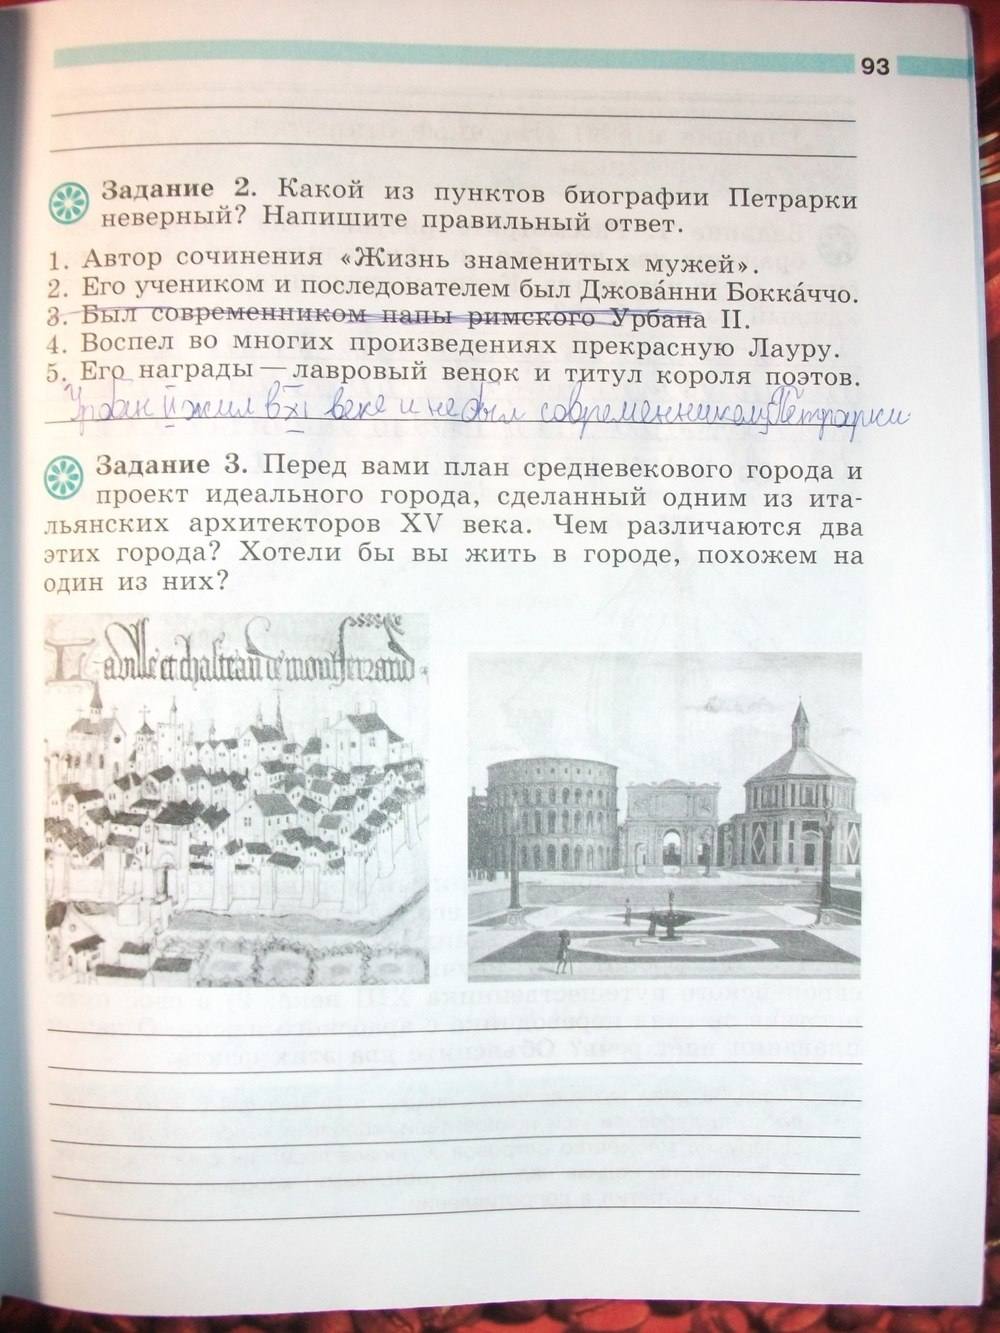 93
Задание 2. Какой из пунктов биографии Петрарки
неверный? Напишите правильный ответ.
1. Автор сочинения «Жизнь знаменитых мужей».
2. Его учеником и последователем был Джова́нни Бокка́ччо.
3. Был современником папы римского Урбана II.
4. Воспел во многих произведениях прекрасную Лауру.
5. Его награды — лавровый венок и титул короля поэтов.
Урбан II жил в XI веке и не был современником Петрарки
Задание 3. Перед вами план средневекового города и
проект идеального города, сделанный одним из ита-
льянских архитекторов XV века. Чем различаются два
этих города? Хотели бы вы жить в городе, похожем на
один из них?
La ville et chasteau de montferrand